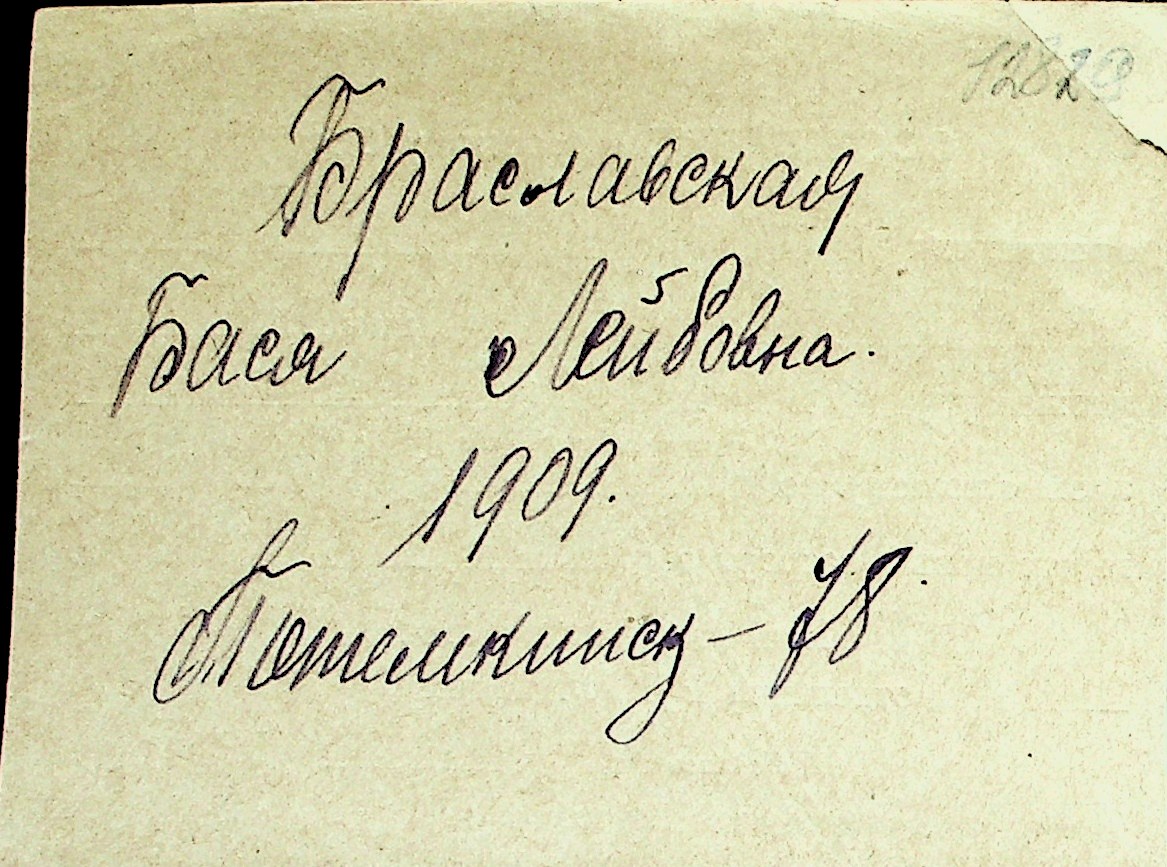 12829
Браславская
Бася Лейбовна.
1909.
Потемкинск – 78.